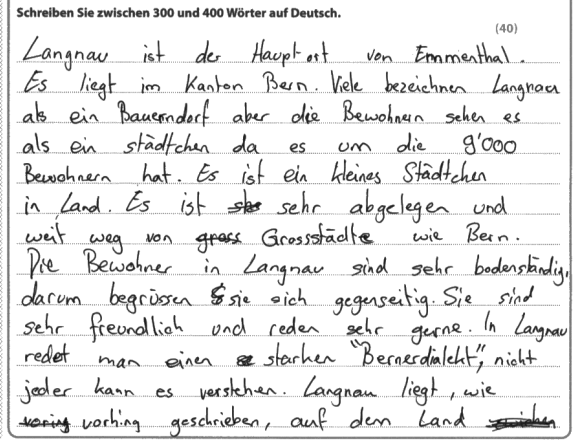 Schreiben Sie zwischen 300 und 400 Wörter auf Deutsch.
(40)
Langnau ist der Hauptort von Emmenthal.
Es liegt im Kanton Bern. Viele bezeichnen Langnau
als ein Bauerndorf aber die Bewohnern sehen es
als ein städtchen da es um die 9'000
Bewohnern hat. Es ist ein kleines Städtchen
in Land. Es ist sehr abgelegen und
weit weg von Grossstädte wie Bern.
Die Bewohner in Langnau sind sehr bodenständig,
darum begrüssen sie sich gegenseitig. Sie sind
sehr freundlich und reden sehr gerne. In Langnau
redet man einen starken "Bernerdialekt", nicht
jeder kann es verstehen. Langnau liegt, wie
vorhing geschrieben, auf dem Land